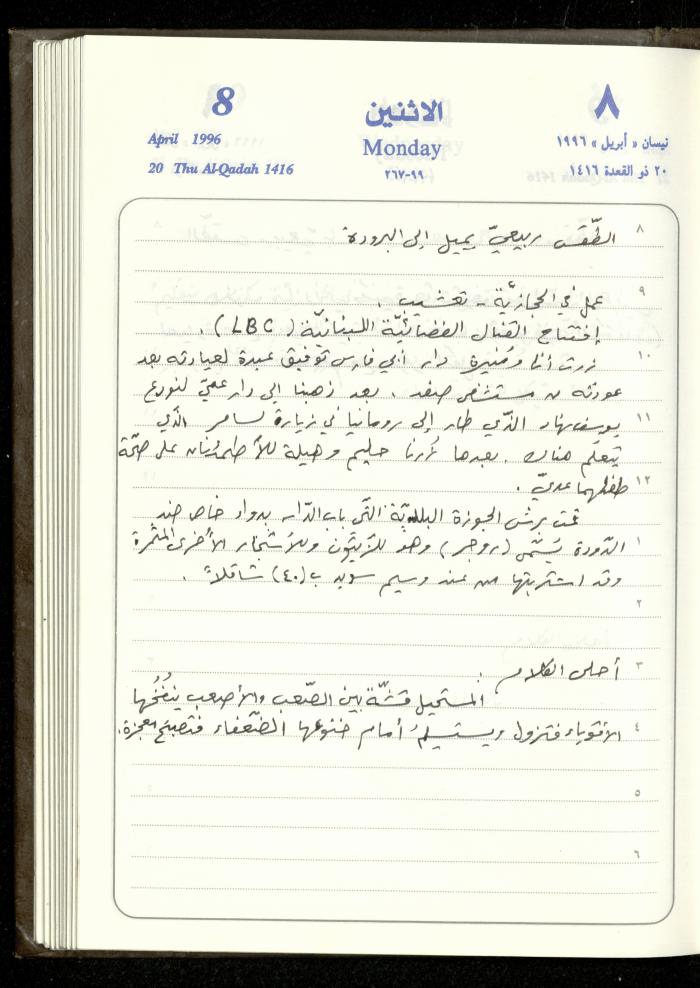 8 الاثنين ٨
April 1996 Monday نيسان « أبريل » ١٩٩٦
20 Thu Al-Qadah 1416 ٢٦٧-٩٩ ٢٠ ذو القعدة ١٤١٦
٨ الطّقس ربيعيّ يميل إلى البرودة
٩ عمل في الحجازيّة - تعشيب .
إفتتاح القنال الفضائيّة اللبنانيّة ( LBC ) .
١٠ زرت أنا ومُنيرة دار أبي فارس توفيق عبدة لعيادته بعد
عودته من مستشفى صفد . بعد ذهبنا إلى دار عمّيّ لنودع
١١ يوسف نهاد الذّي طار إلى رومانيا في زيارة لسامر الذّي
يتعلّم هناك . بعدها زُرنا حليم وهيلة للأطمئنان على صحّة
١٢ طفلهما عديّ .
قمت برش الجوزة البلديّة التّي باب الدّار بدواء خاص ضد
١ الدّودة يُسمّى (روجر) وهو للزّيتون وللأشجار الأخرى المثمرة
وقد اشتريتها من عند وسيم سويد ب (٤٠) شاقلاً .
٢
٣ أحلى الكلام :
المستحيل قشّة بين الصّعب والأصعب ينفُخُها
٤ الأقوياء فتزول ويستسلمُ أمام خنوعها الضّعفاء فتصبح معجزة.
٥
٦